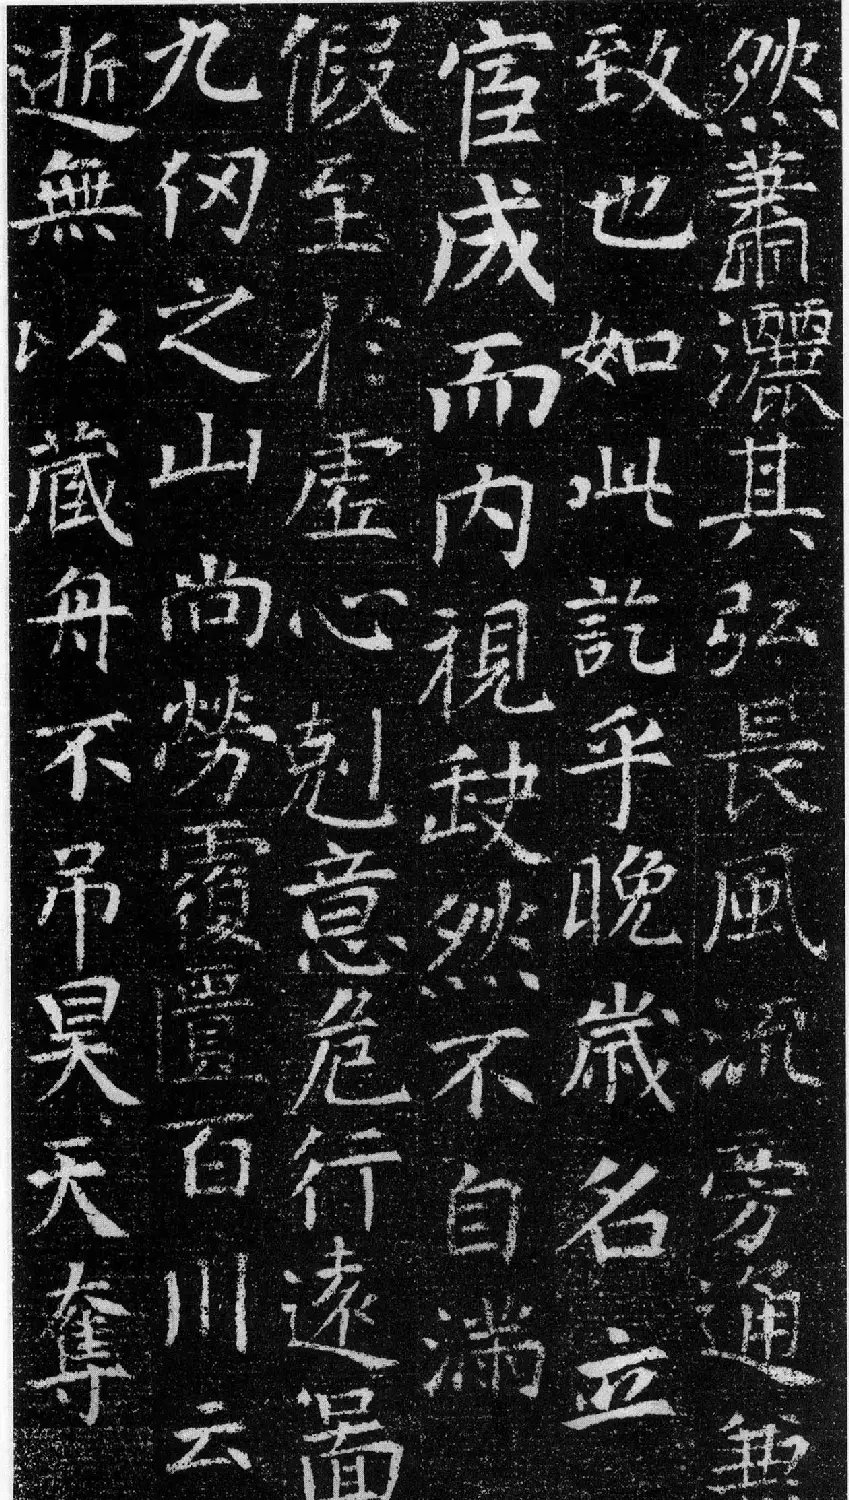 然蕭灑其弘長風流旁通無
致也如此訖乎晚歲名立
宦成而內視缺然不自滿
假至於虛心剋意危行遠圖
九仞之山尚勞覆蕢百川云
逝無以藏舟不弔昊天奪